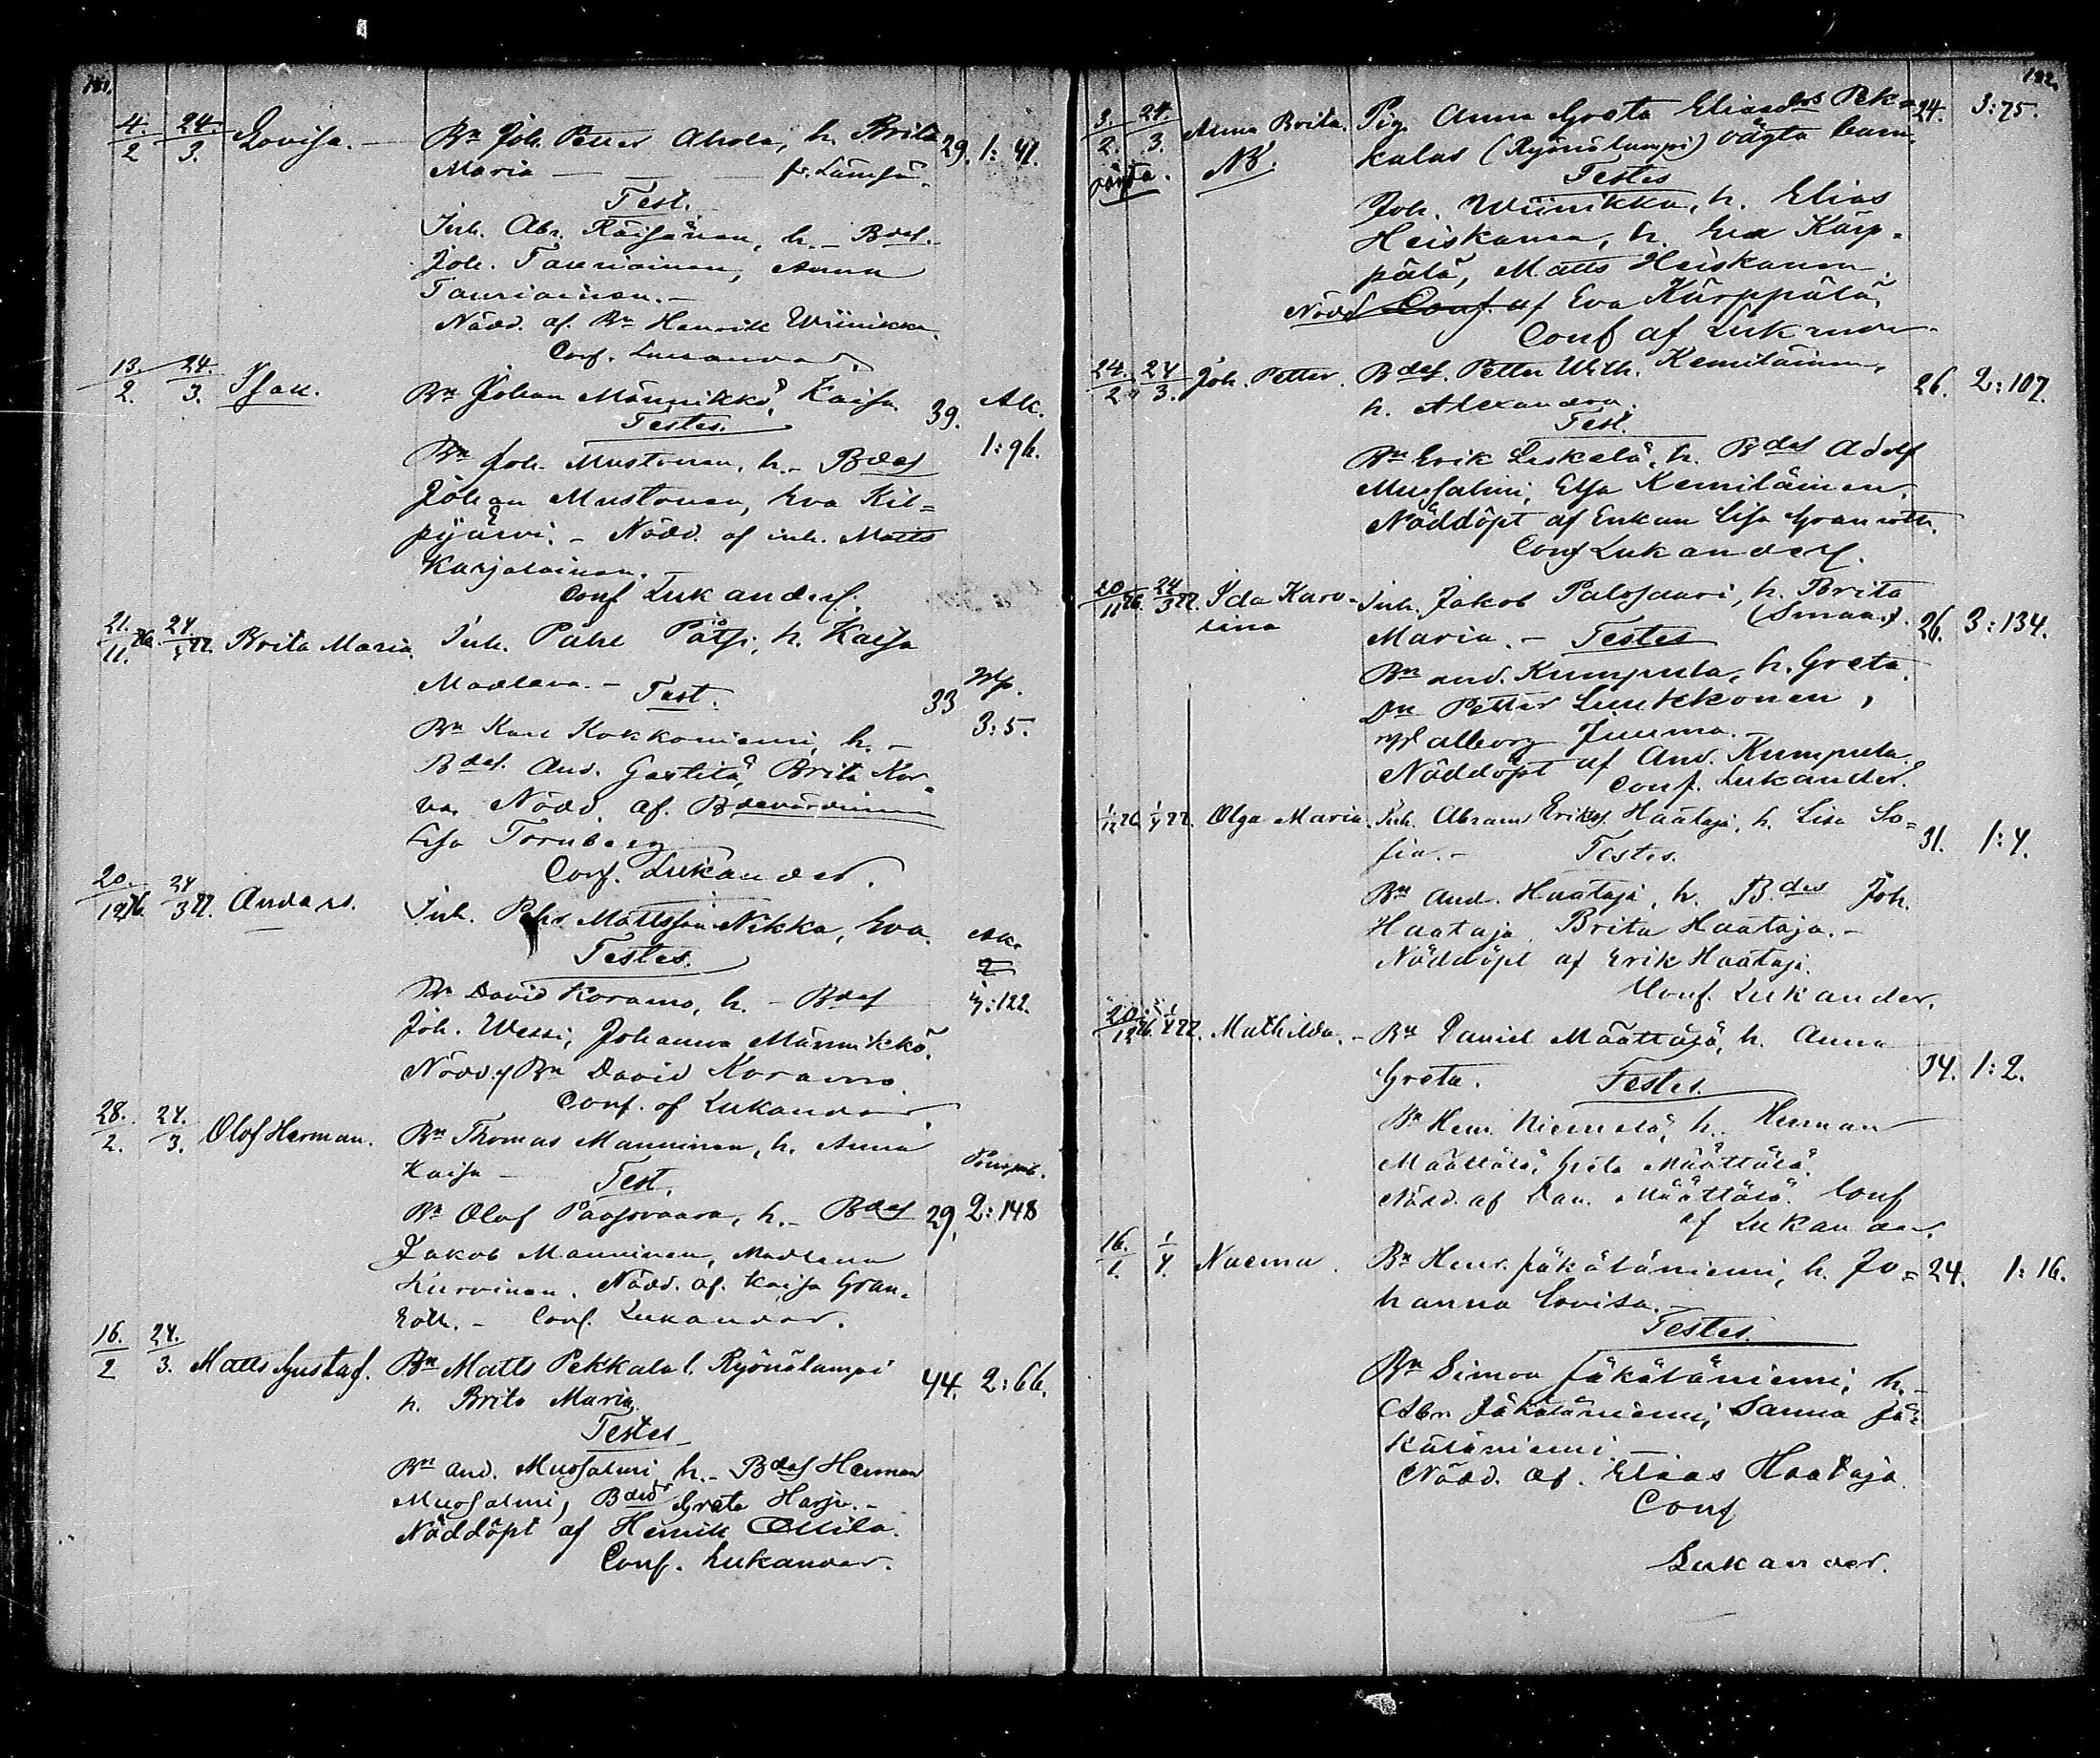 181.
4./2 24./3. Lovisa. — Bn Joh. Petter Ahola, h. Brita 29. 1:47.
Maria — — — fr. Lämsä.
Test.
Inh. Abr. Räisänen, h. – Bdes.
Joh. Tauriainen, Anna
Tauriainen. –
Nödd. af. Bn Henrik Wiinikka
Conf. Lukander
13./2. 24./3. Isak. Bn Johan Männikkö, Kaisa 39. Ak.
Testes. 1:96.
Bn Joh. Mustonen, h. – Bdes
Johan Mustonen, Eva Kil=
pijärvi. – Nödd. af inh. Matts
Karjalainen.
Conf Lukander.
21./11. 76 24/3 77. Brita Maria. Inh. Påhl Pätsi, h. Kaisa
Madlena. – Test. 33 3:5.
Bn Karl Kokkoniemi, h. –
Bdes. And. Gastilä, Brita Kor=
va. Nödd. af.
Lisa Tornberg
Conf. Lukander.
20./12 76. 24/3 77. Anders. Inh. Pehr Mattsson Nikka, Eva. Ak.
Testes. 2
Bn David Koramo, h. – Bdes :122.
Joh. Wessi, Johanna Männikkö.
Nödd. af Bn David Koramo.
Conf. af Lukander
28./2. 24./3. Olof Herman. Bn Thomas Manninen, h. Anna
Kaisa — Test.
Bn Olof Paasovaara, h. – Bdes 29. 2:148
Jakob Manninen, Madlena
Kurvinen. Nödd. af. Kaisa Gran=
roth. – Conf. Lukander.
16./2 24./3. Matts Gustaf. Bn Matts Pekkala l. Ryönälampi 44. 2:66.
h. Brita Maria.
Testes
Bn And. Muosalmi, h. – Bdes Herman
Muosalmi, Bdes Greta Harju. –
Nöddöpt af Henrik Ollila.
Conf. Lukander.
182.
3./2. 24./3. Anna Brita. Pig. Anna Greta Eliasdr Pek= 24. 3:75.
oägta. NB. kalas (Ryönälampi) oägta barn.
Testes
Joh. Wiinikka, h. Elias
Heiskanen, h. Eva Kärp=
pälä, Matts Heiskanen.
Nödd Conf. af Eva Kärppälä,
Conf af Lukander
24./2. 24/3. Joh. Petter. Bdes. Petter Wilh. Kemiläinen, 26. 2:107.
h. Alexandra.
Test.
Bn Erik Leskelä, h. Bdes Adolf
Muosalmi, Elsa Kemiläinen.
Nöddöpt af Enkan Lisa Granroth.
Conf Lukander.
20/11 76. 24/3 77. Ida Karo= Inh. Jakob Palosaari, h. Brita
lina (Smaa.). 26. 3:134.
Maria. – Testes
Bn And. Kumpula, h. Greta.
Dn Petter Luukkonen,
Valborg Juuma.
Nöddöpt af And. Kumpula.
Conf. Lukander.
1/12 76. 1/4 77. Olga Maria. Inh. Abram Eriks. Haataja, h. Lisa So= 31. 1:4.
fia. – Testes.
Bn And. Haataja, h. Bdes Joh.
Haataja. Brita Haataja. –
Nöddöpt af Erik Haataja.
Conf. Lukander.
20./12 76. 1/4 77. Mathilda. – Bn Daniel Määttälä, h. Anna 34. 1:2.
Greta. Testes.
Bn Henr. Niemelä, h. Herman
Määttälä, Greta Määttälä.
Nödd. af Dan. Määttälä. Conf
af Lukander.
16./1. 1/4. Naema. Bn Henr. Jäkäläniemi, h. Jo= 24. 1:16.
hanna Lovisa. –
Testes.
Bn Simon Jäkäläniemi, h. –
Abr. Jäkäläniemi, Sanna Jä=
käläniemi. –
Nödd. af. Elias Haataja.
Conf
Lukander.